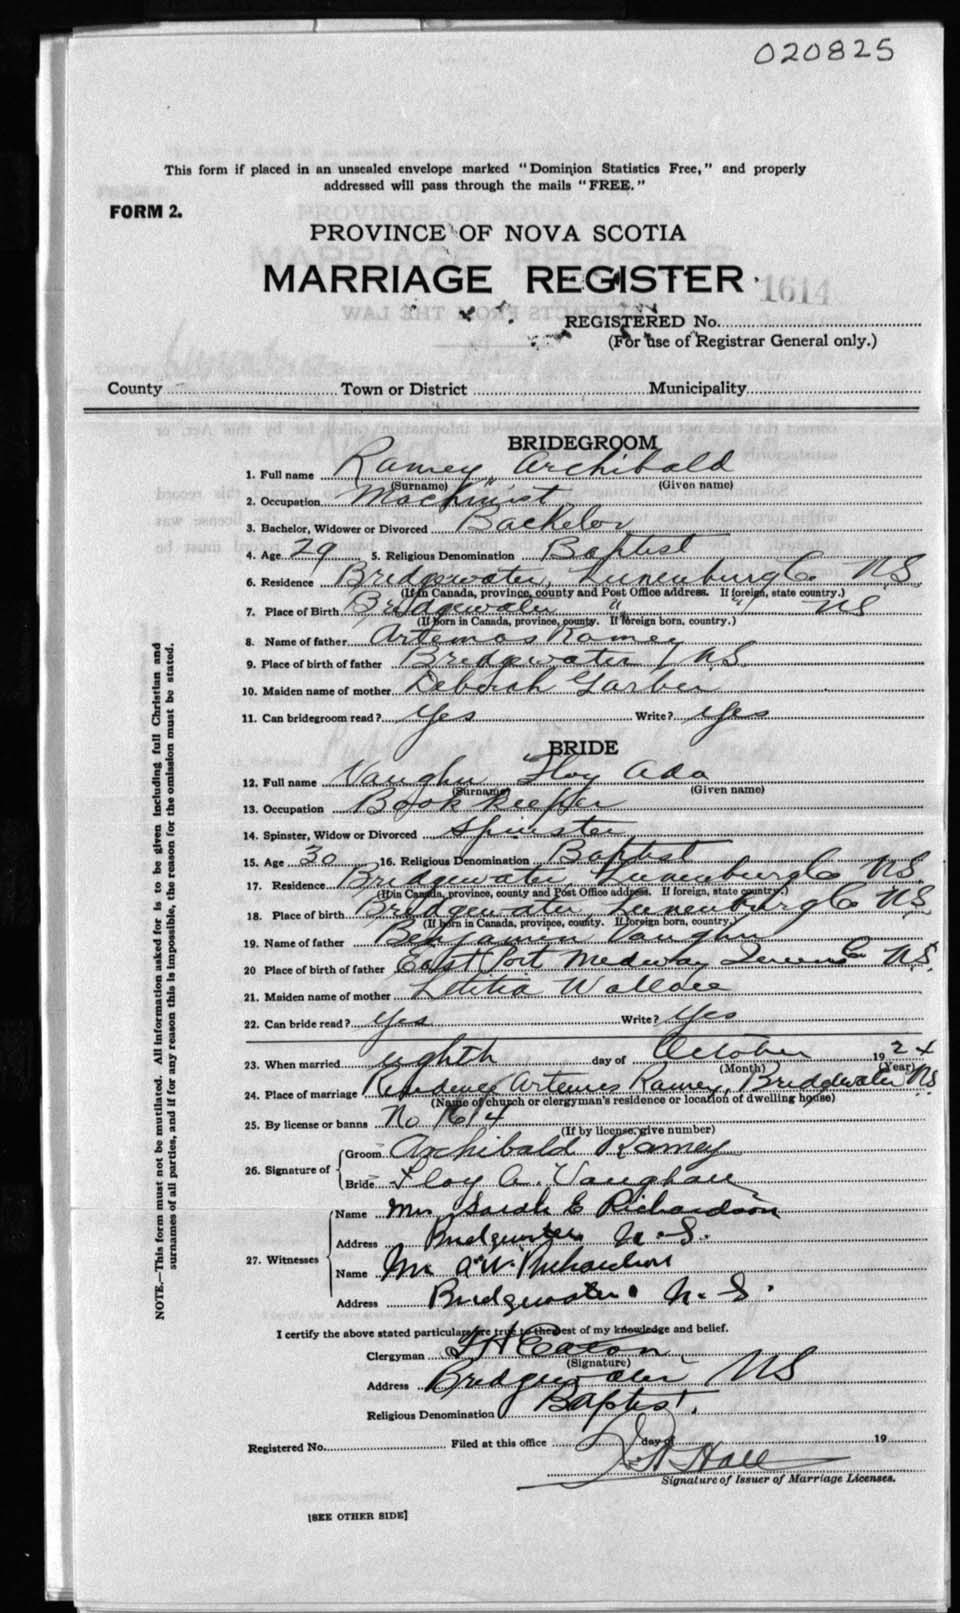 020825
This form if placed in an unsealed envelope marked "Dominion Statistics Free," and properly
addressed will pass through the mails "FREE."
FORM 2.
PROVINCE OF NOVA SCOTIA
MARRIAGE REGISTER
1614
REGISTERED No.
(For use of Registrar General only.)
County Town or District Municipality
BRIDEGROOM
1. Full name Ramey, Archibald
(Surname) (Given name)
2. Occupation Machinist
3. Bachelor, Widower or Divorced Bachelor
4. Age 29 5. Religious Denomination Baptist
6. Residence Bridgewater, Lunenburg Co NS
(If in Canada, province, county and Post Office address. If foreign, state country.)
7. Place of Birth Bridgewater " " NS
(If born in Canada, province, county. If foreign born, country.)
8. Name of father Artemas Ramey
9. Place of birth of father Bridgewater N.S.
10. Maiden name of mother Deborah Garber
11. Can bridegroom read? Yes Write? Yes
BRIDE
12. Full name Vaughn Floy Ada
(Surname) (Given name)
13. Occupation Book Keeper
14. Spinster, Widow or Divorced Spinster
15. Age 30 16. Religious Denomination Baptist
17. Residence Bridgewater Lunenburg Co NS.
(If in Canada, province, county and Post Office address. If foreign, state country.)
18. Place of birth Bridgewater, Lunenburg Co N.S.
(If born in Canada, province, county. If foreign born, country.)
19. Name of father Benjamin Vaughn
20 Place of birth of father East Port Medway Queens Co N.S.
21. Maiden name of mother Letitia Wallace
22. Can bride read? Yes Write? Yes
23. When married eighth day of October 1924
(Month) (Year)
24. Place of marriage Residence Artemes Ramey, Bridgewater NS
(Name of church or clergyman's residence or location of dwelling house)
25. By license or banns No 1614
(If by license, give number)
26. Signature of Groom Archibald Ramey
Bride Floy A. Vaughan
27. Witnesses Name Mrs Sarah E Richardson
Address Bridgewater N.S.
Name Mr A.W. Richardson
Address Bridgewater N.S.
I certify the above stated particulars are true to the best of my knowledge and belief.
Clergyman Eaton
(Signature)
Address Bridgewater NS
Religious Denomination Baptist.
Registered No. Filed at this office day of 19
Hall
Signature of Issuer of Marriage Licenses.
[SEE OTHER SIDE]
NOTE.—This form must not be mutilated. All information asked for is to be given including full Christian and
surnames of all parties, and if for any reason this is impossible, the reason for the omission must be stated.